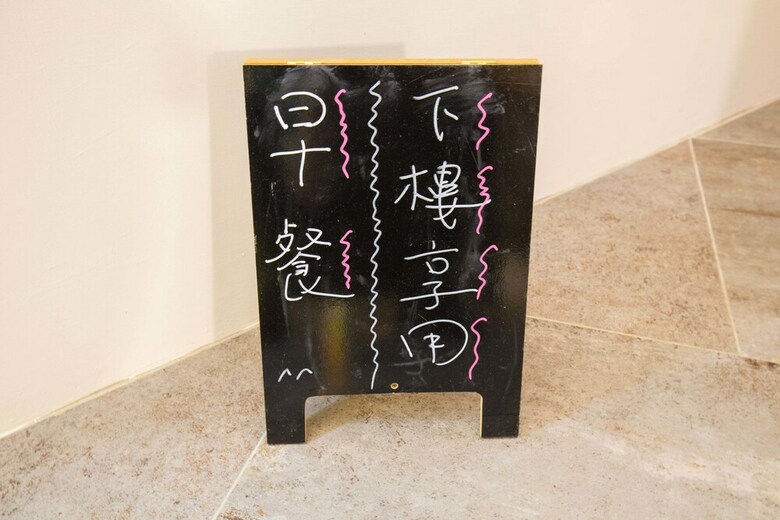 下樓享用
早餐 ^^